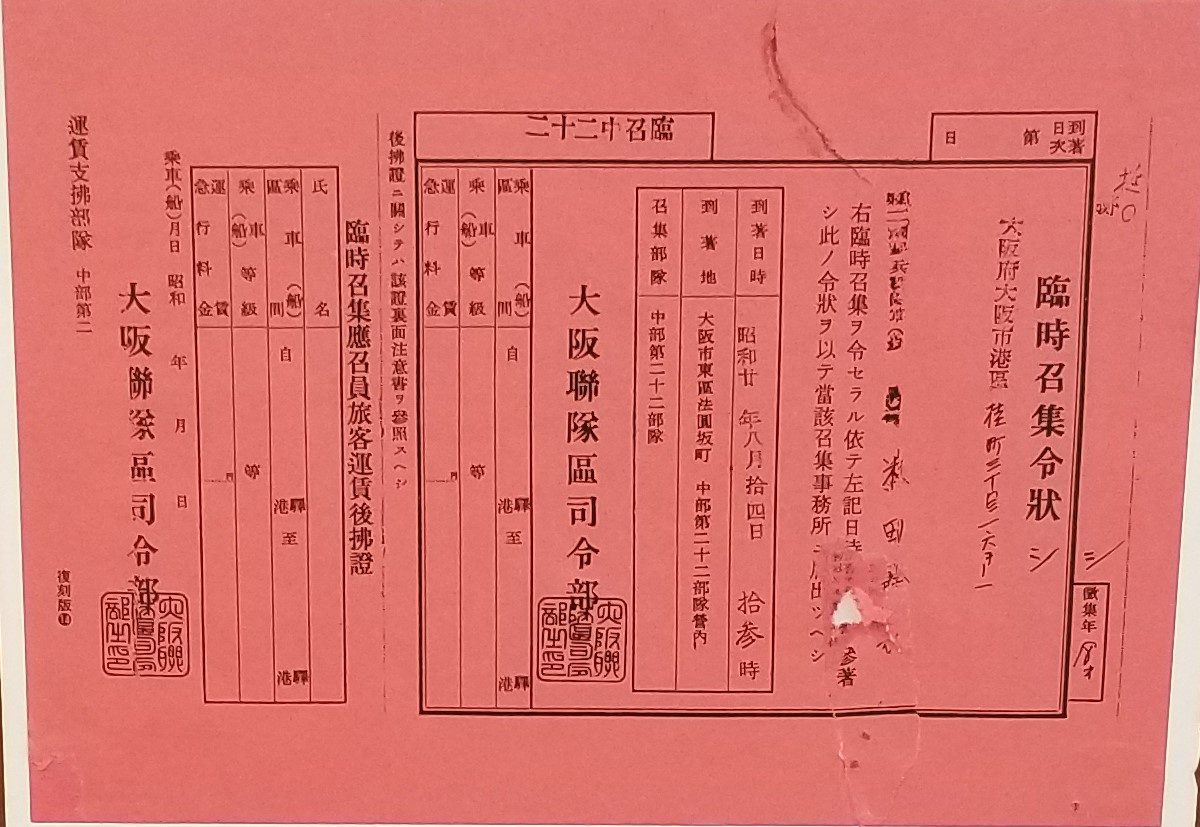 到著日次 第 日
臨召中二十二
臨時召集令狀
シ
シ
徵集年
大阪府大阪市港區 桂町三丁目
右臨時召集ヲ令セラル依テ左記日時 參著
シ此ノ令狀ヲ以テ當該召集事務所ニ屆出ツヘシ
到著日時 昭和廿年八月拾四日 拾參時
到著地 大阪市東區法圓坂町 中部第二十二部隊營內
召集部隊 中部第二十二部隊
大阪聯隊區司令部
乘車(船)區間 自 驛港 至 驛港
乘車(船)等級 等
運賃急行料金 円
後拂證ニ關シテハ該證裏面注意書ヲ參照スヘシ
臨時召集應召員旅客運賃後拂證
氏名
乘車(船)區間 自 驛港 至 驛港
乘車(船)等級 等
運賃急行料金 円
乘車(船)月日 昭和 年 月 日
大阪聯隊區司令部
運賃支拂部隊 中部第二
復刻版⑭